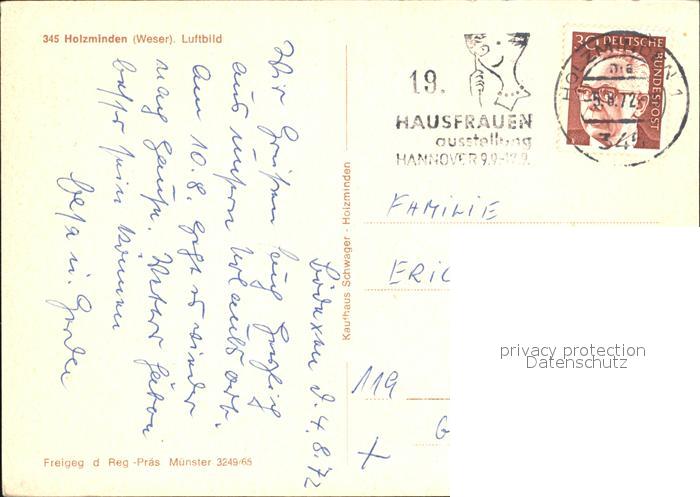 345 Holzminden (Weser). Luftbild
19.
HAUSFRAUEN
ausstellung
HANNOVER 9.9.-17.9.
30 DEUTSCHE
BUNDESPOST
HOLZMINDEN 1
ma
-5.8.72
345
FAMILIE
ERIC
119
G
+
Kaufhaus Schwager - Holzminden
d. 4.8.72
Wir Grüßen Euch herzlich
aus unserm Urlaubsort.
Am 10.8. geht es wieder
nach Hause. Wetter hätte
besser sein können
u. Gerda
Freigeg d Reg -Präs Münster 3249/65
privacy protection
Datenschutz